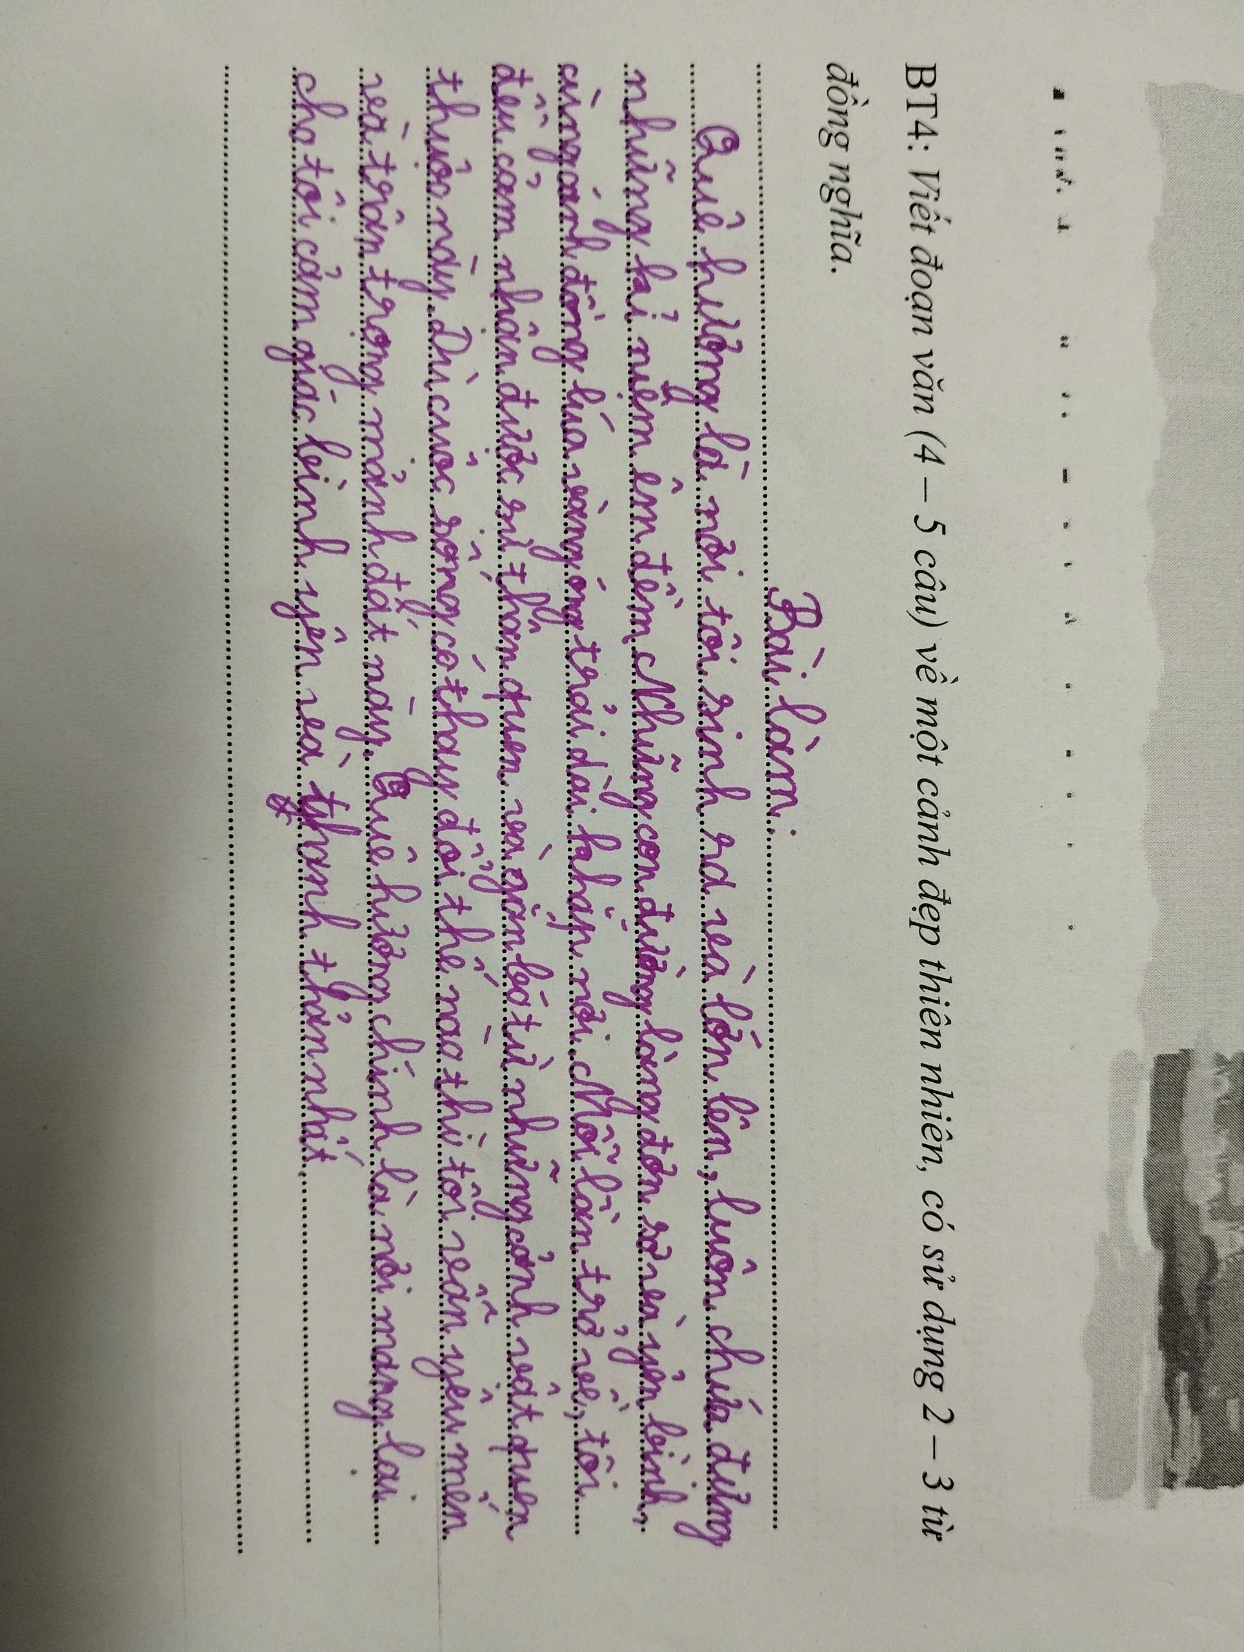 BT4: Viết đoạn văn (4 – 5 câu) về một cảnh đẹp thiên nhiên, có sử dụng 2 – 3 từ
đồng nghĩa.
Bài làm:
Quê hương là nơi tôi sinh ra và lớn lên, luôn chứa đựng
những kỉ niệm êm đềm. Những con đường làng đơn sơ và yên bình,
cùng cánh đồng lúa vàng óng trải dài khắp nơi. Mỗi lần trở về, tôi
đều cảm nhận được sự thân quen và gắn bó từ những cảnh vật quen
thuộc này. Dù cuộc sống có thay đổi thế nào thì tôi vẫn yêu mến
và trân trọng mảnh đất này. Quê hương chính là nơi mang lại
cho tôi cảm giác bình yên và thanh thản nhất.